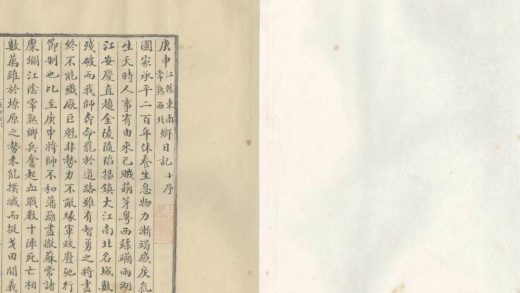 庚申江陰東南常熟西北鄉日記小序
國家承平二百年休養生息物力漸竭感戾氣
生天時人事有由來已賊萌芽粵西蹂躪兩湖
江安慶直趨金陵陷揚鎮大江南北名城數
殘破而我師奔命罷於道路雖有智勇之將盡
終不能殲厥巨魁非勢力不敵緣軍政廢弛行
節制也比至庚申將帥不和藩籬盡撤蘇常諸
糜爛江陰常熟鄉兵奮起血戰數十陣死亡相
數萬雖於燎原之勢未能撲滅而挺戈田間義